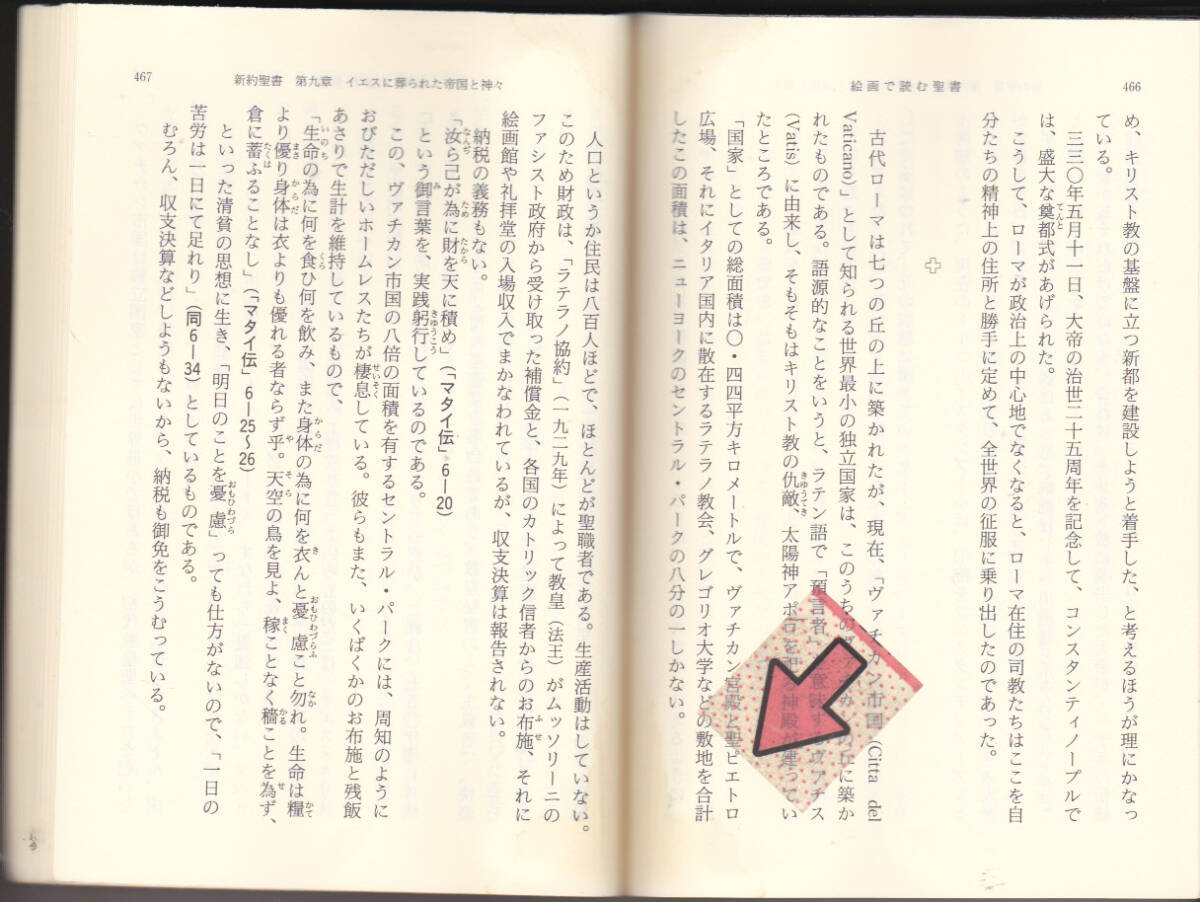 466
絵画で読む聖書
め、キリスト教の基盤に立つ新都を建設しようと着手した、と考えるほうが理にかなっ
ている。
三三〇年五月十一日、大帝の治世二十五周年を記念して、コンスタンティノープルで
は、盛大な奠都式があげられた。
こうして、ローマが政治上の中心地でなくなると、ローマ在住の司教たちはここを自
分たちの精神上の住所と勝手に定めて、全世界の征服に乗り出したのであった。
古代ローマは七つの丘の上に築かれたが、現在、「ヴァチカン市国 (Citta del
Vaticano)」として知られる世界最小の独立国家は、このうちの丘に築か
れたものである。語源的なことをいうと、ラテン語で「預言者」を意味するヴァチス
(Vatis) に由来し、そもそもはキリスト教の仇敵、太陽神アポロを祀る神殿が建ってい
たところである。
「国家」としての総面積は〇・四四平方キロメートルで、ヴァチカン宮殿と聖ピエトロ
広場、それにイタリア国内に散在するラテラノ教会、グレゴリオ大学などの敷地を合計
したこの面積は、ニューヨークのセントラル・パークの八分の一しかない。
新約聖書 第九章 イエスに葬られた帝国と神々
467
人口というか住民は八百人ほどで、ほとんどが聖職者である。生産活動はしていない。
このため財政は、「ラテラノ協約」(一九二九年)によって教皇(法王)がムッソリーニの
ファシスト政府から受け取った補償金と、各国のカトリック信者からのお布施、それに
絵画館や礼拝堂の入場収入でまかなわれているが、収支決算は報告されない。
納税の義務もない。
「汝ら己が為に財を天に積め」(「マタイ伝」6—20)
という御言葉を、実践躬行しているのである。
この、ヴァチカン市国の八倍の面積を有するセントラル・パークには、周知のように
おびただしいホームレスたちが棲息している。彼らもまた、いくばくかのお布施と残飯
あさりで生計を維持しているもので、
「生命の為に何を食ひ何を飲み、また身体の為に何を衣んと憂慮こと勿れ。生命は糧
より優り身体は衣よりも優れる者ならず乎。天空の鳥を見よ、稼ことなく穡ことを為ず、
倉に蓄ふることなし」(「マタイ伝」6—25〜26)
といった清貧の思想に生き、「明日のことを憂慮」っても仕方がないので、「一日の
苦労は一日にて足れり」(同6—34)としているものである。
むろん、収支決算などしようもないから、納税も御免をこうむっている。